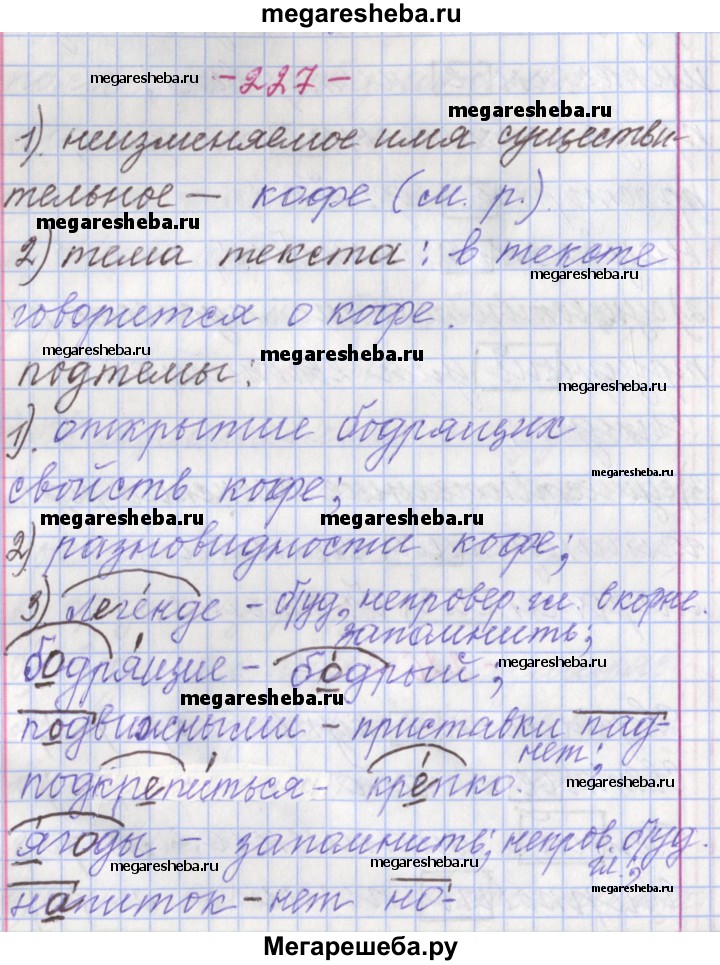 megaresheba.ru
megaresheba.ru
- 227 -
megaresheba.ru
1) неизменяемое имя существи-
тельное — кофе (м. р.)
megaresheba.ru
2) тема текста: в тексте
megaresheba.ru
говорится о кофе.
megaresheba.ru
megaresheba.ru
подтемы:
megaresheba.ru
1). открытие бодрящих
megaresheba.ru
свойств кофе;
megaresheba.ru
megaresheba.ru
2) разновидности кофе;
megaresheba.ru
3) легенде - буд, непровер. гл. в корне.
запомнить;
megaresheba.ru
бодрящие - бодрый;
megaresheba.ru
megaresheba.ru
подвижными - приставки пад-
нет;
подкрепиться - крепко.
megaresheba.ru
ягоды - запомнить; непров. буд.
гл.;
megaresheba.ru
megaresheba.ru
megaresheba.ru
напиток - нет но-
Мегарешеба.ру